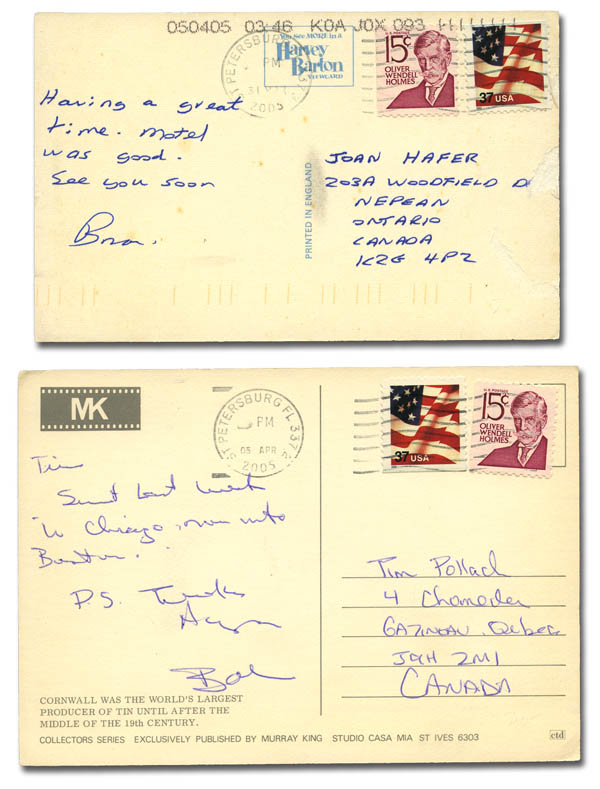 050405 03:46 KOA JOX 093
You See MORE in a
Harvey
Barton
VIEWCARD
ST PETERSBURG
PM
2005
15¢
OLIVER
WENDELL
HOLMES
37 USA
Having a great
time. Motel
was good.
See you soon
PRINTED IN ENGLAND
JOAN HAFER
203A WOODFIELD DR
NEPEAN
ONTARIO
CANADA
K2G 4P2
MK
ST PETERSBURG FL 337
PM
05 APR
2005
37 USA
U.S. POSTAGE
15¢
OLIVER
WENDELL
HOLMES
Tim
Last Week
in Chicago, now into
Boston.
P.S.
Bob
Tim Pollach
4
GATINEAU, Quebec
J9H 2M1
CANADA
CORNWALL WAS THE WORLD'S LARGEST
PRODUCER OF TIN UNTIL AFTER THE
MIDDLE OF THE 19th CENTURY.
COLLECTORS SERIES EXCLUSIVELY PUBLISHED BY MURRAY KING STUDIO CASA MIA ST IVES 6303
ctd